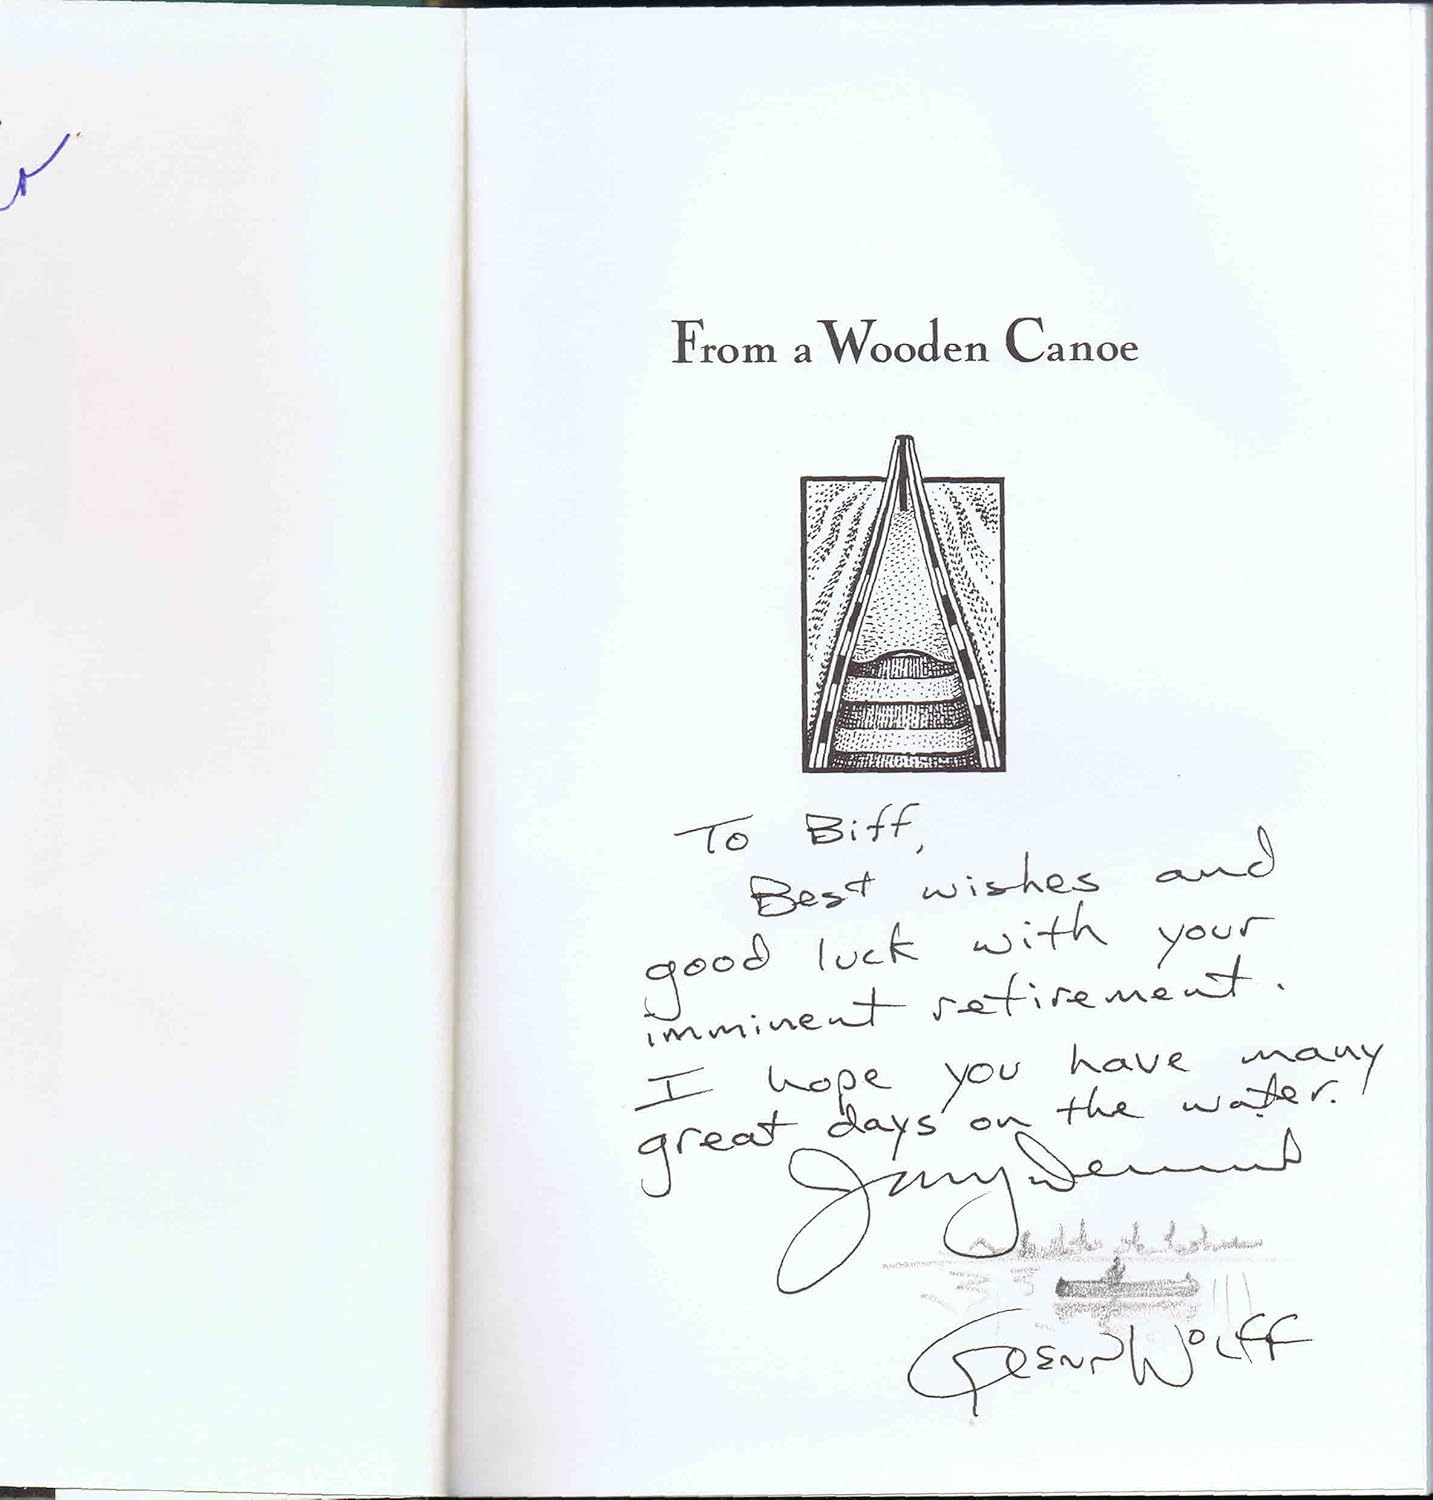 From a Wooden Canoe
To Biff,
Best wishes and
good luck with your
imminent retirement.
I hope you have many
great days on the water.
Jerry Dennis
Glenn Wolff